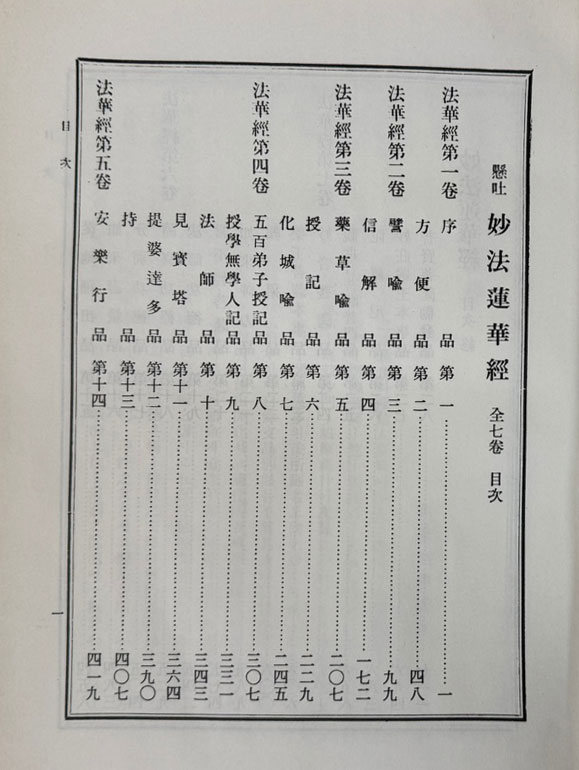 懸吐 妙法蓮華經 全七卷 目次
法華經第一卷 序品第一 一
方便品第二 四八
法華經第二卷 譬喩品第三 九九
信解品第四 一七二
法華經第三卷 藥草喩品第五 二〇七
授記品第六 二二九
化城喩品第七 二四五
法華經第四卷 五百弟子授記品第八 三〇七
授學無學人記品第九 三三一
法師品第十 三四三
見寶塔品第十一 三六四
提婆達多品第十二 三九〇
持品第十三 四〇七
法華經第五卷 安樂行品第十四 四一九
目次
一